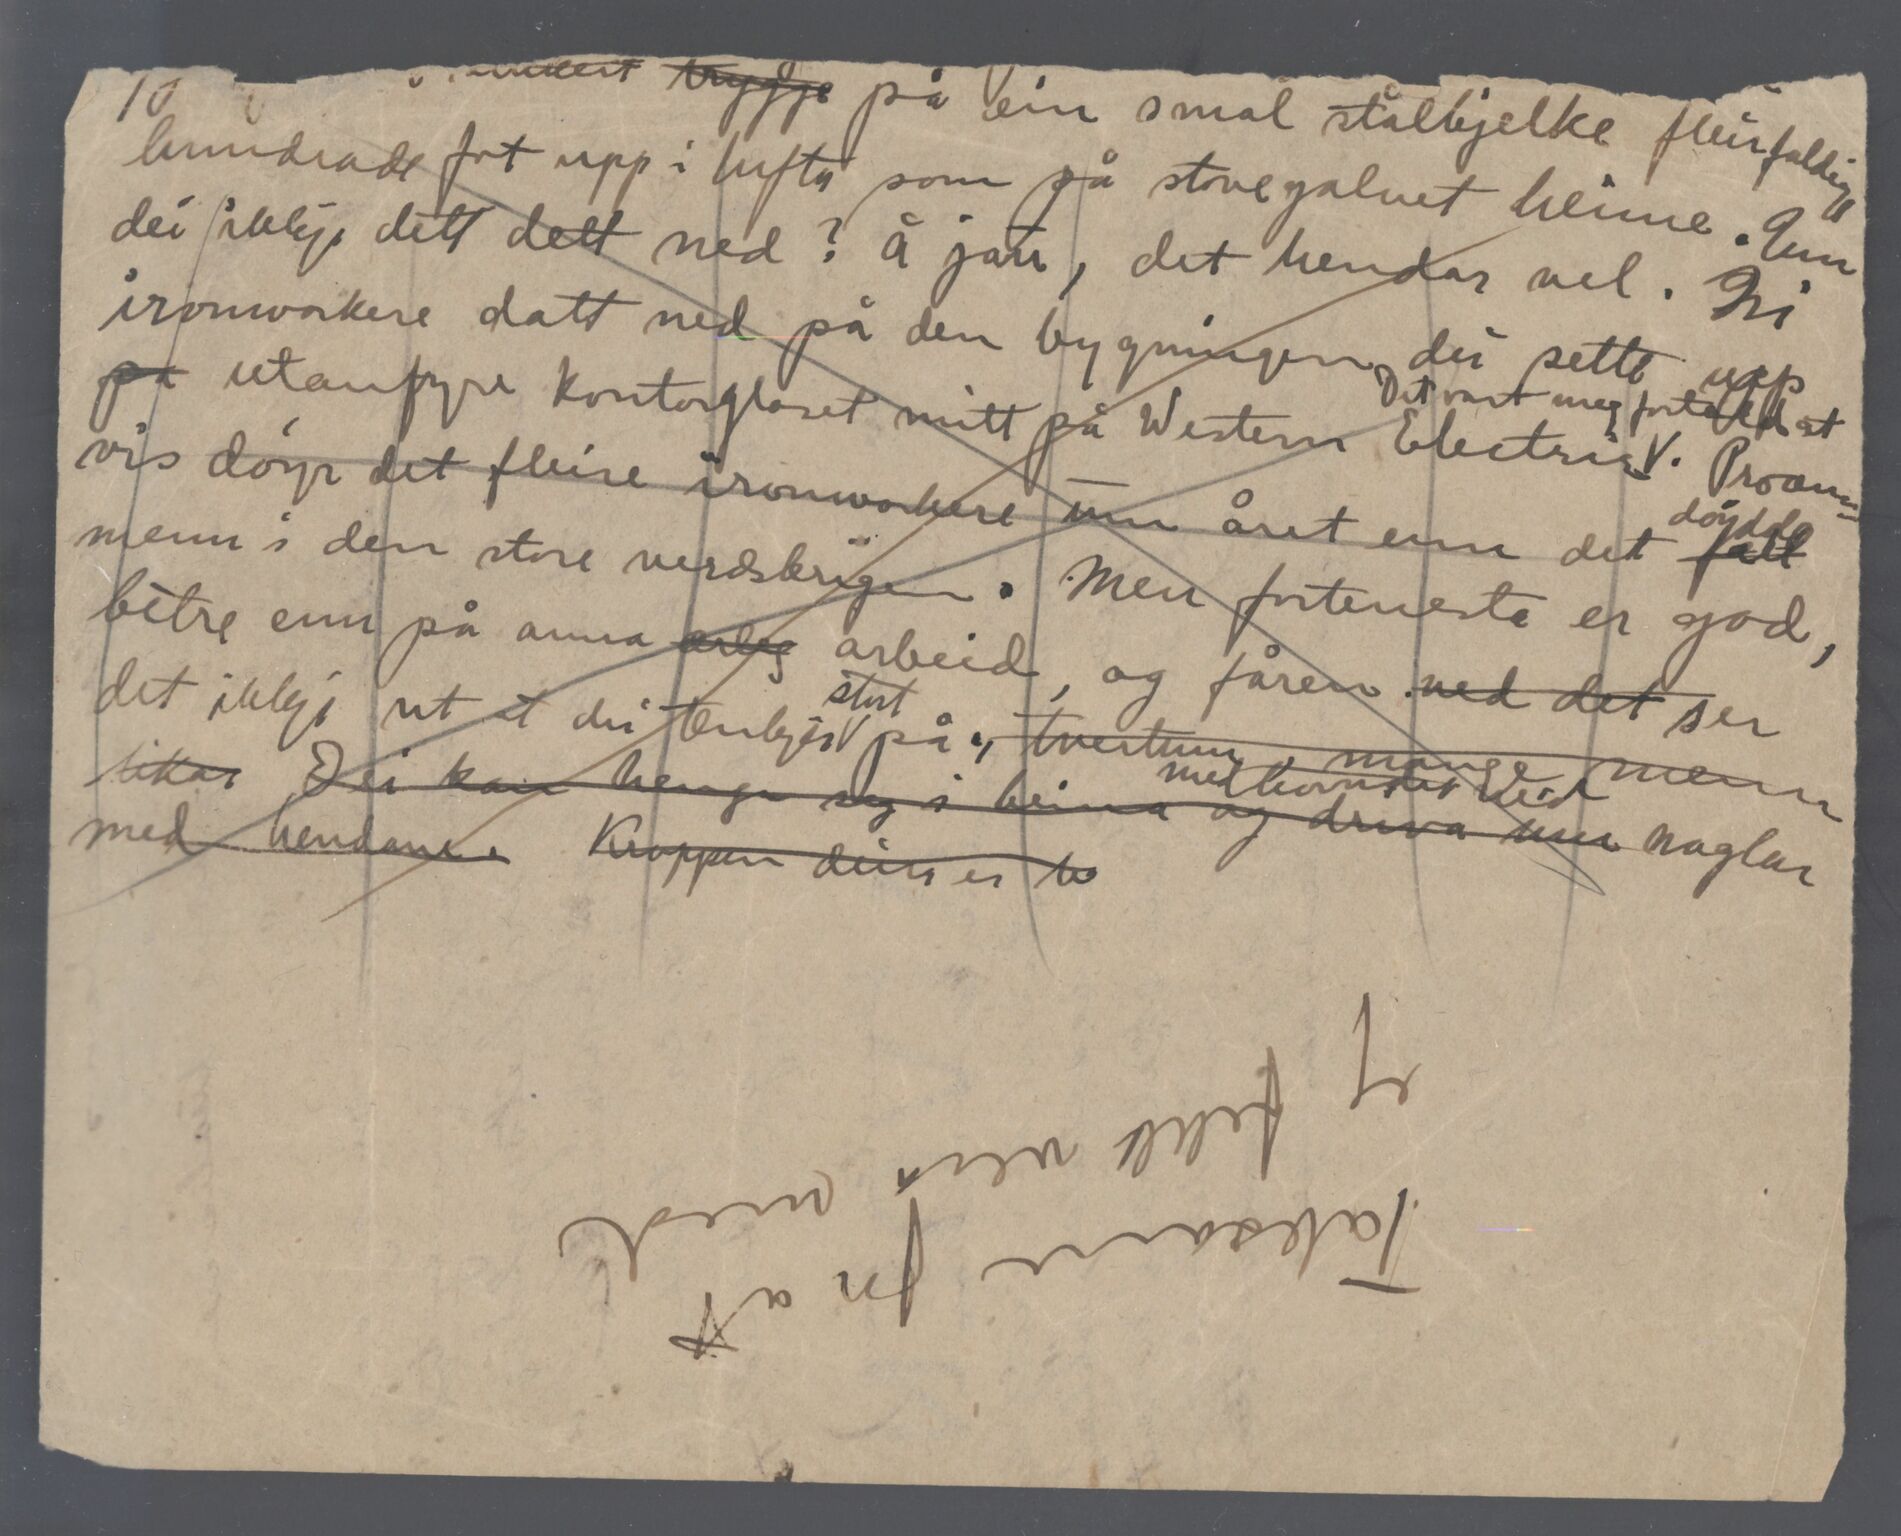 trygge på ein smal stålbjelke fleirfaldige
hundrade fot upp i lufta som på stovegolvet heime. Enn
dei ikkje dett dett ned? Å jau, det hendar vel. Tri
ironworkere datt ned på den bygningen dei sette upp
på utanfyre kontorglaset mitt på Western Electric. Det vart meg fortald at Procent-
vis döyr det fleire ironworkere um året enn det fall döydde
menn i den store verdskrigen. Men fortenesta er god,
betre enn på anna arbeid, og fåren ved det ser
det ikkje ut at dei tenkjer stort på, tvertum, mange menn
likar Dei kan henge seg i beina og driva inn naglar
med hendane. Kroppen deira er to
Taksam for at
eg fekk vera med